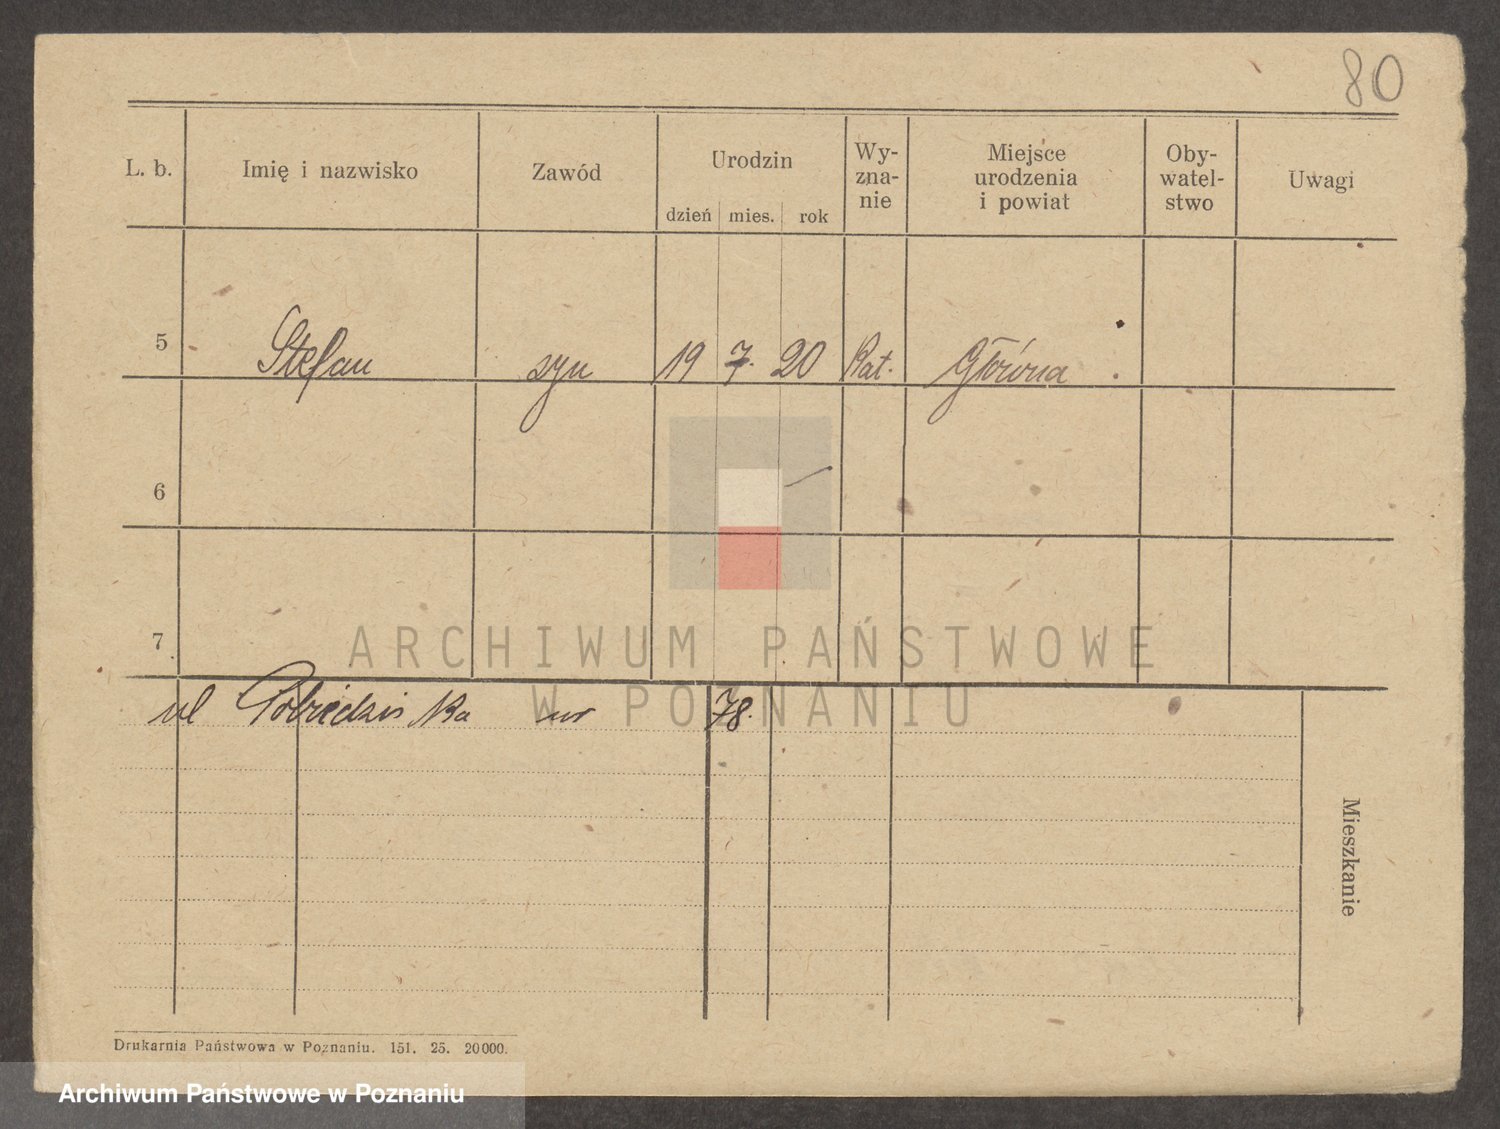 80
L. b. Imię i nazwisko Zawód Urodzin Wy- Miejsce Oby- Uwagi
zna- urodzenia watel-
dzień mies. rok nie i powiat stwo
5 Stefan syn 19 7. 20 Kat. Główna .
6
7
ARCHIWUM PAŃSTWOWE
W POZNANIU
ul Pobiedziska nr 78.
Mieszkanie
Drukarnia Państwowa w Poznaniu. 151. 25. 20000.
Archiwum Państwowe w Poznaniu